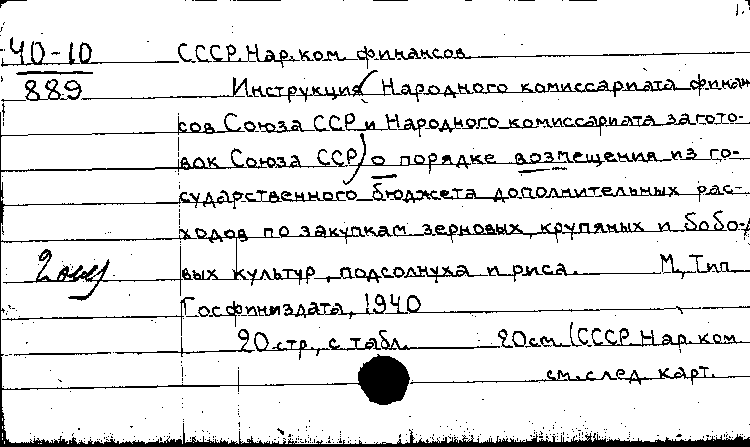 1.
40-10
889
СССР. Нар. ком. финансов
Инструкция (Народного комиссариата финан
сов Союза ССР и Народного комиссариата загото-
вок Союза ССР) о порядке возмещения из го-
сударственного бюджета дополнительных рас-
ходов по закупкам зерновых, крупяных и бобо-
вых культур, подсолнуха и риса. М., Тип
Госфиниздата, 1940
20 стр., с табл. 20 см. (СССР. Нар. ком
см. след. карт.